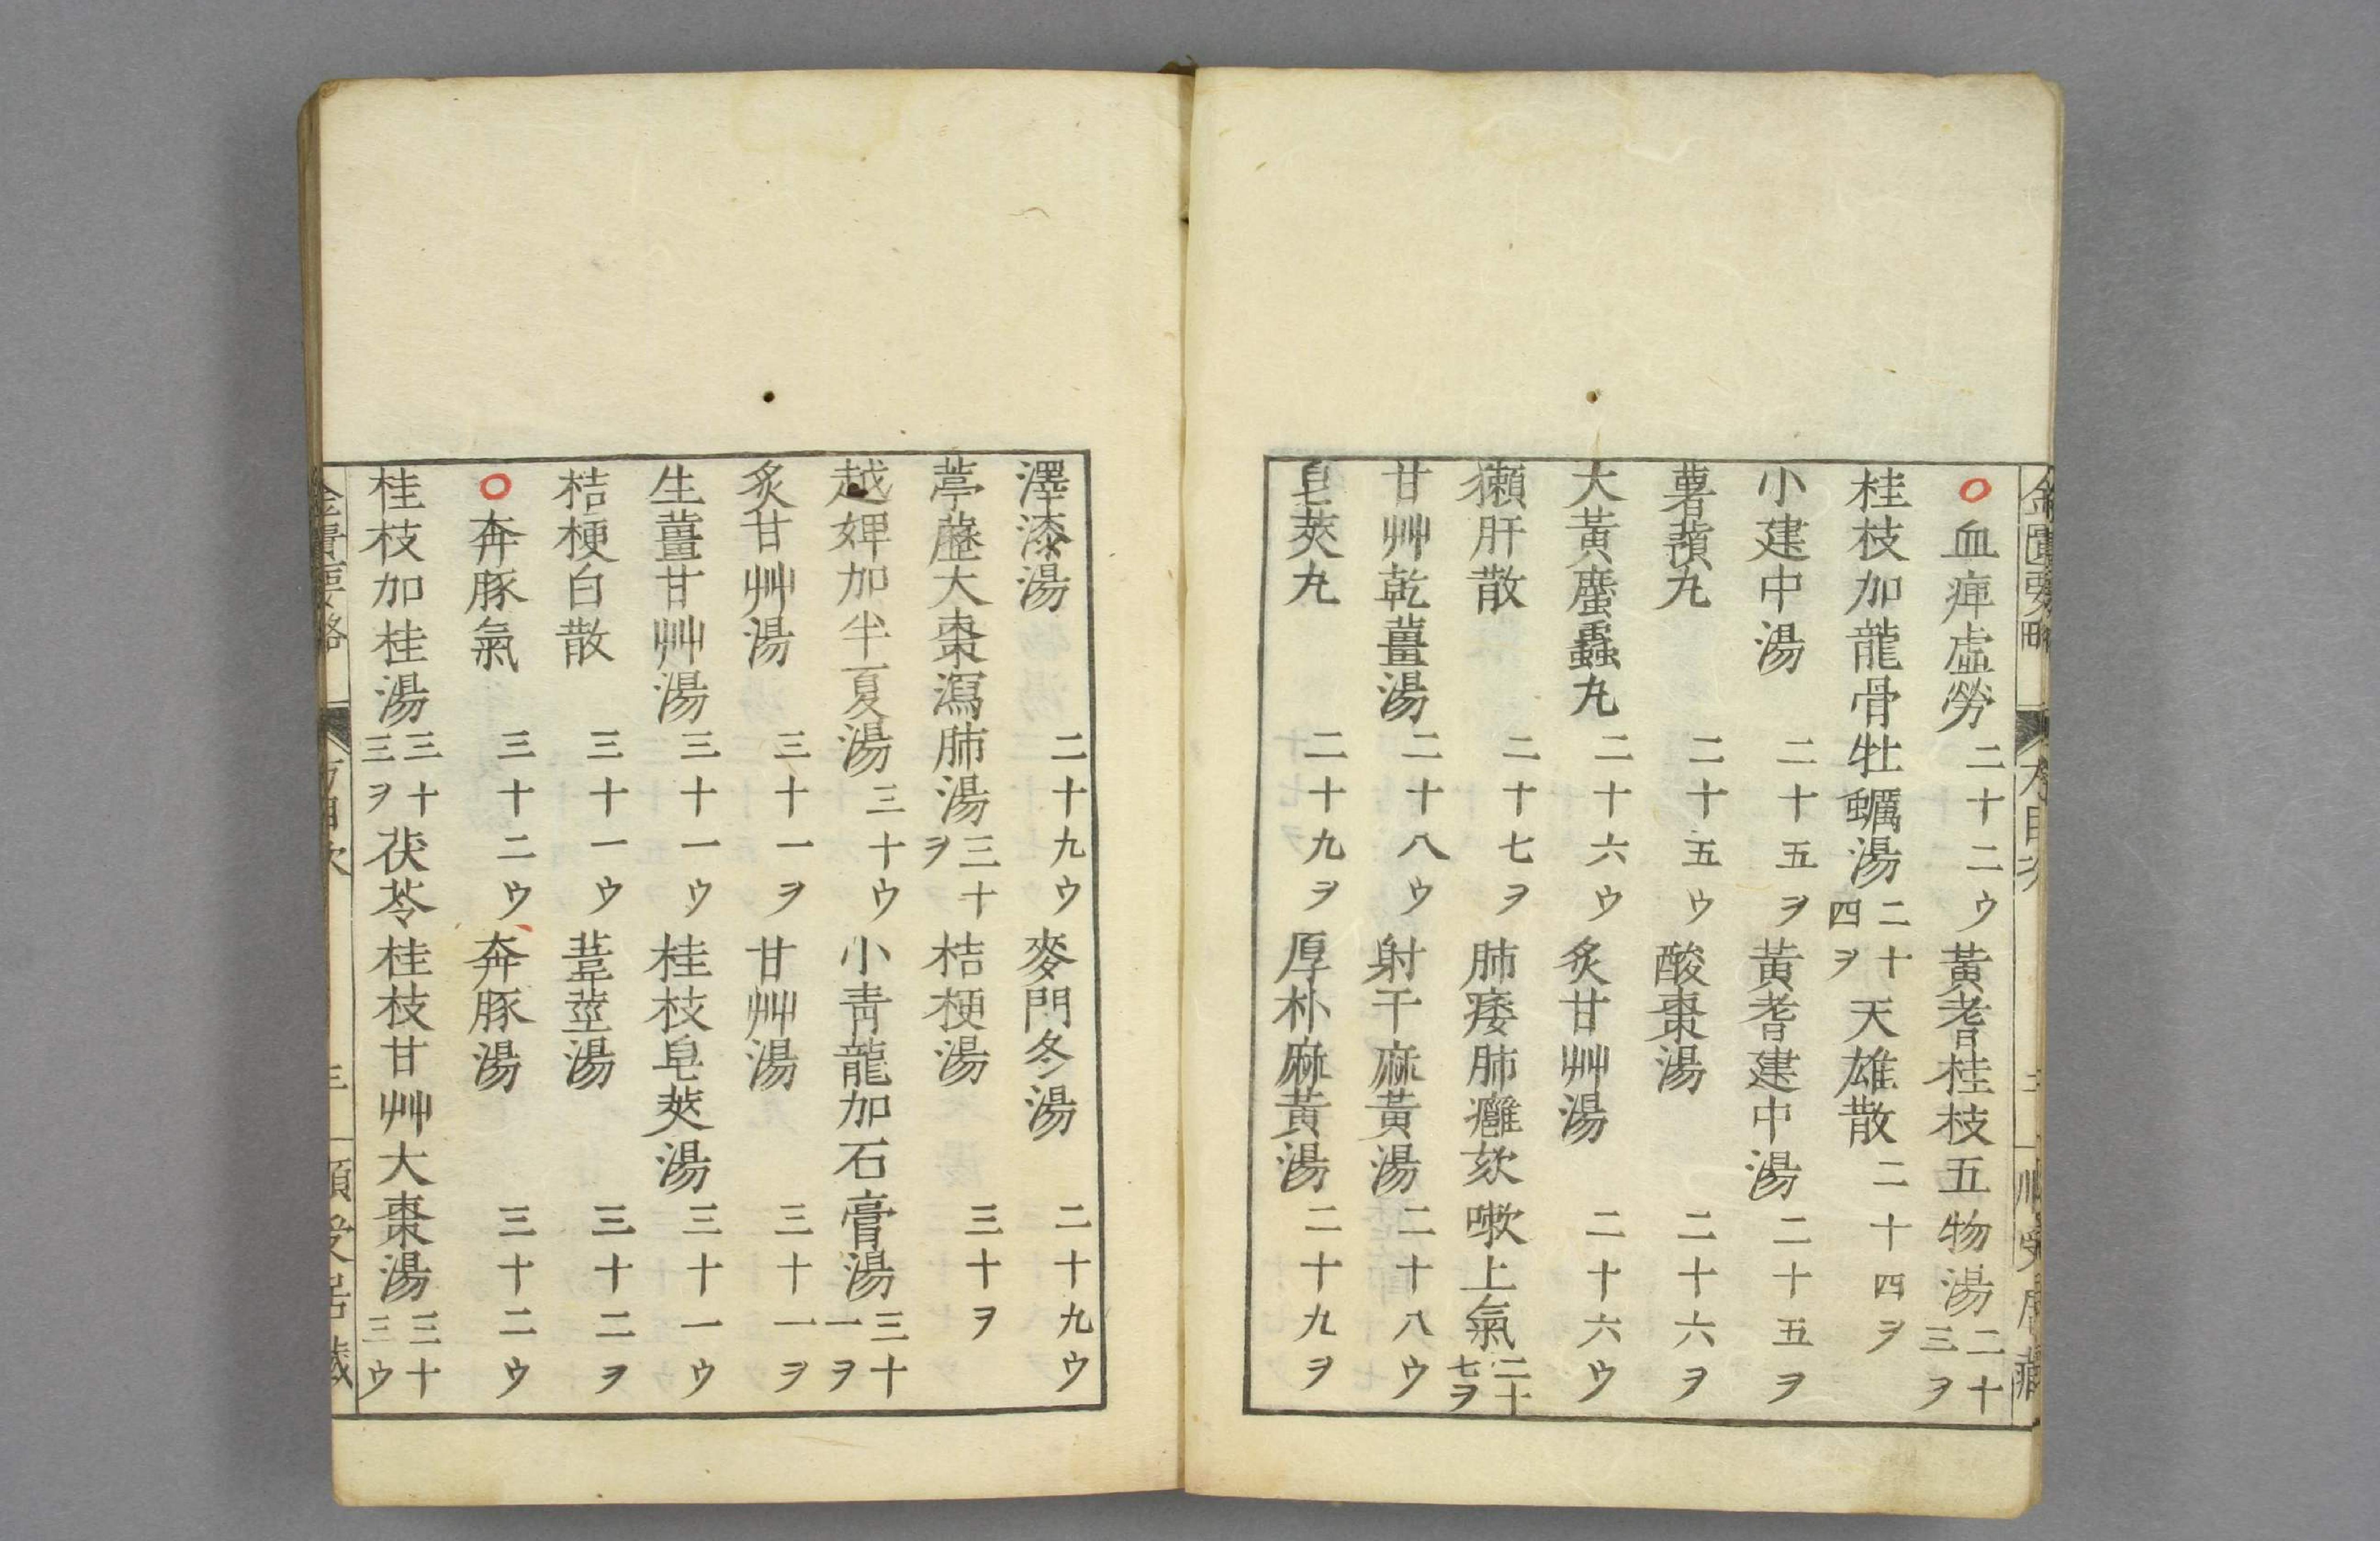 金匱要略 方目次 順受居藏
血痺虛勞 二十二ウ 黃耆桂枝五物湯 二十三ヲ
桂枝加龍骨牡蠣湯 二十四ヲ 天雄散 二十四ヲ
小建中湯 二十五ヲ 黃耆建中湯 二十五ヲ
薯蕷丸 二十五ウ 酸棗湯 二十六ヲ
大黃䗪蟲丸 二十六ウ 炙甘艸湯 二十六ウ
獺肝散 二十七ヲ 肺痿肺癰欬嗽上氣 二十七ヲ
甘艸乾薑湯 二十八ウ 射干麻黃湯 二十八ウ
皂莢丸 二十九ヲ 厚朴麻黃湯 二十九ヲ
澤漆湯 二十九ウ 麥門冬湯 二十九ウ
葶藶大棗瀉肺湯 三十ヲ 桔梗湯 三十ヲ
越婢加半夏湯 三十ウ 小青龍加石膏湯 三十一ヲ
炙甘艸湯 三十一ヲ 甘艸湯 三十一ヲ
生薑甘艸湯 三十一ウ 桂枝皂莢湯 三十一ウ
桔梗白散 三十一ウ 葦莖湯 三十二ヲ
奔豚氣 三十二ウ 奔豚湯 三十二ウ
桂枝加桂湯 三十三ヲ 茯苓桂枝甘艸大棗湯 三十三ウ
金匱要略 方目次 三 順受居藏